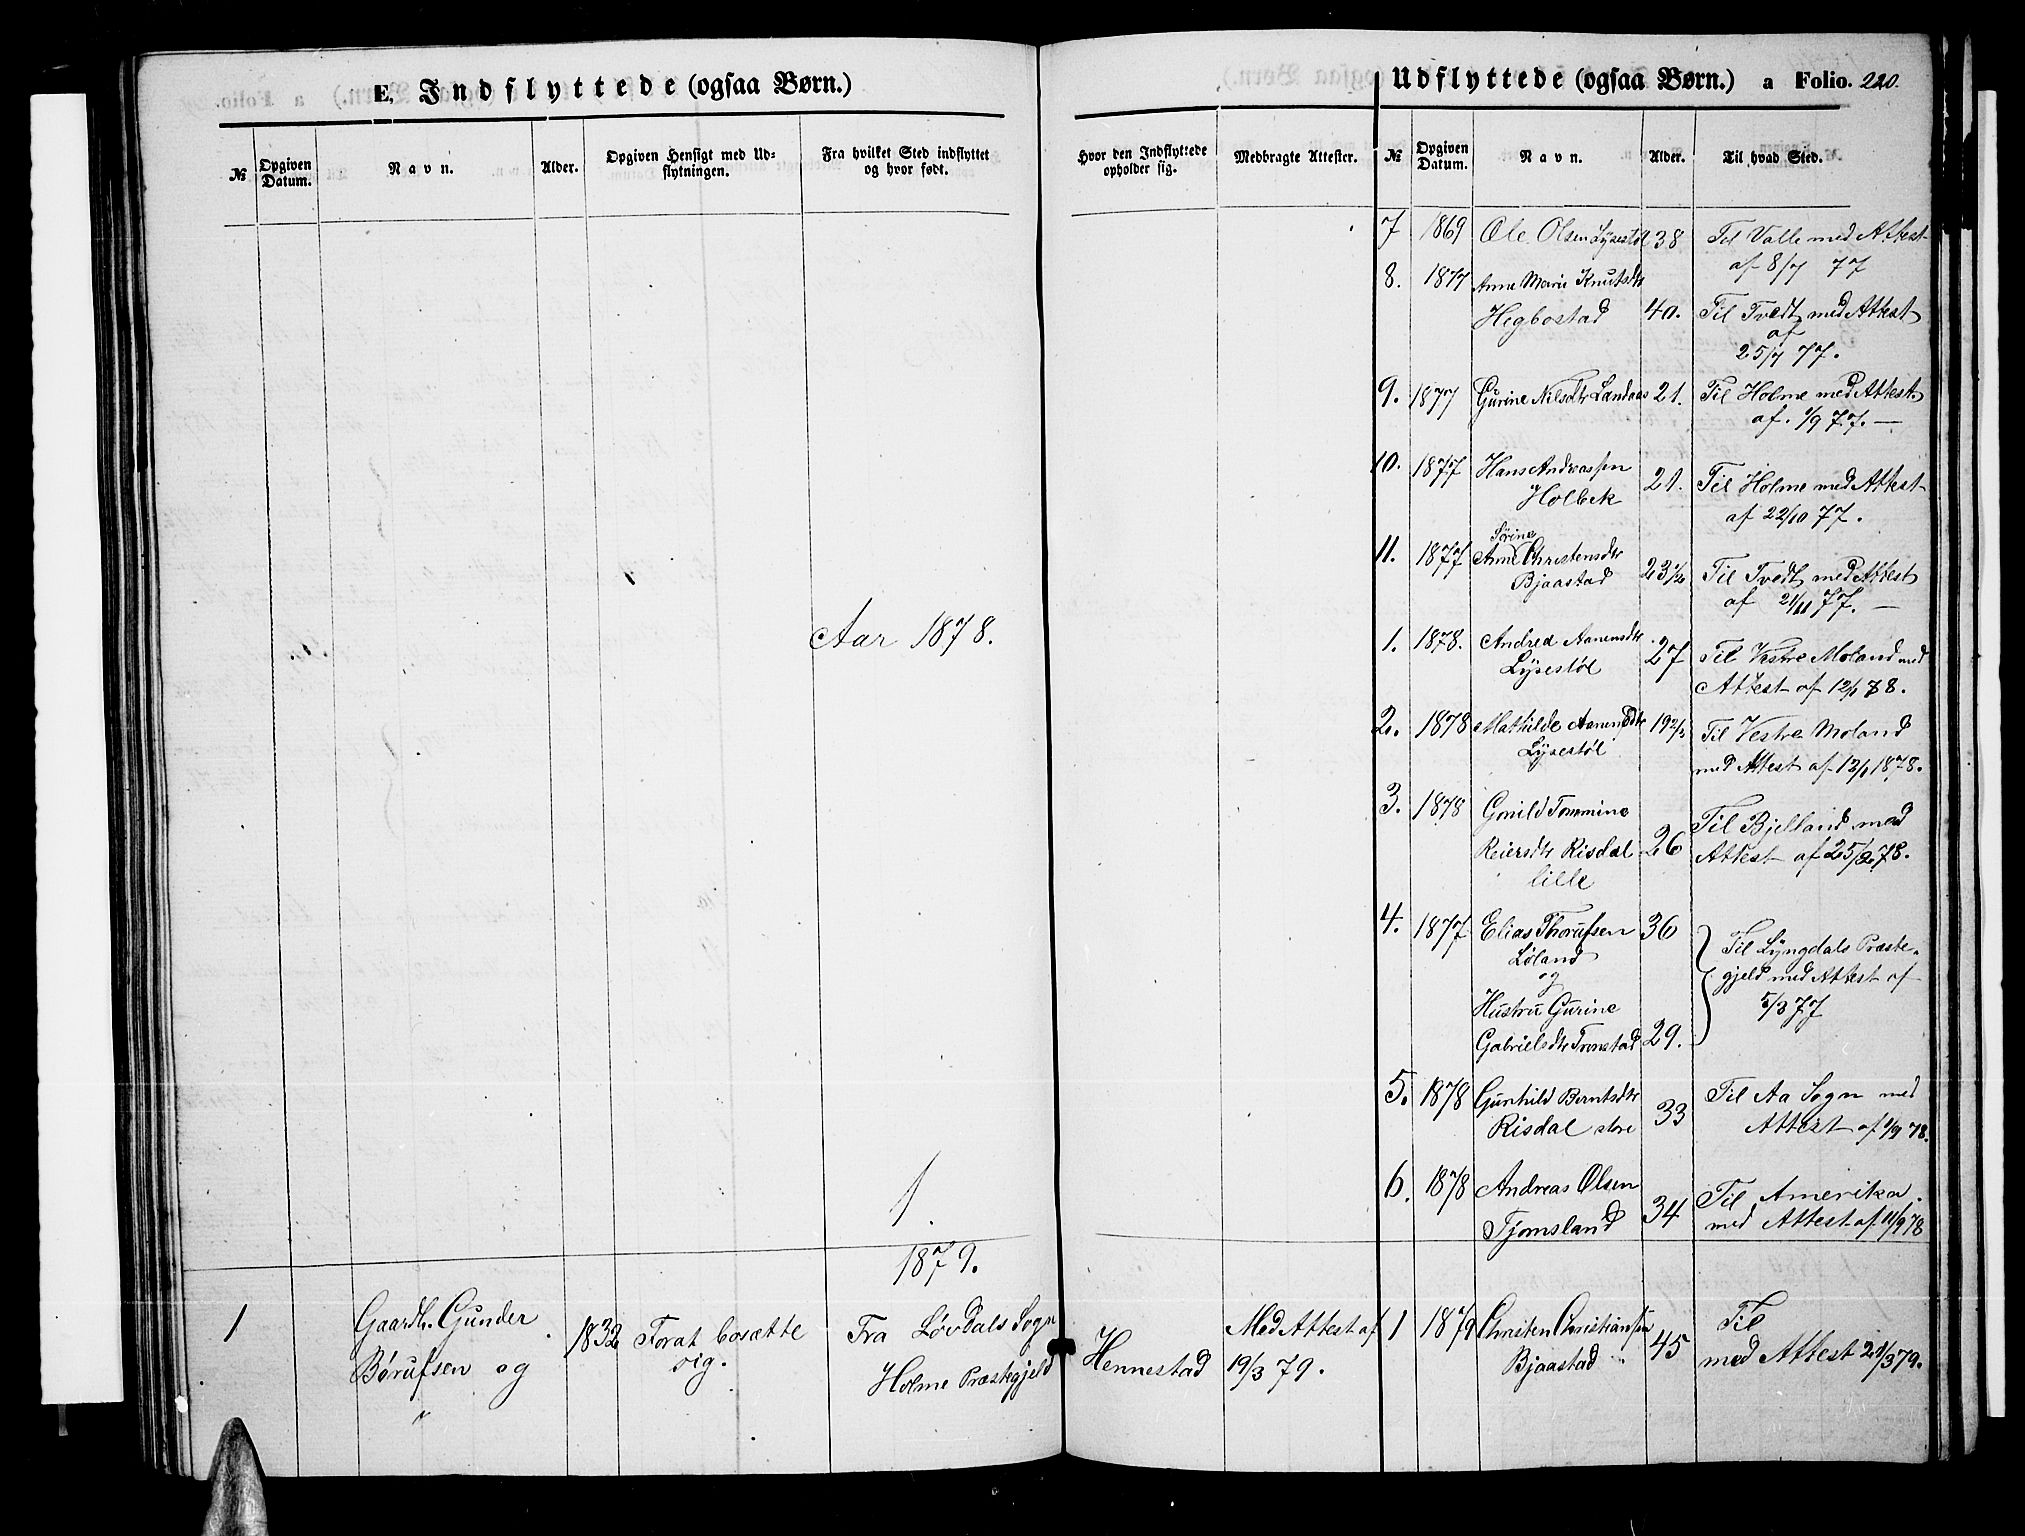 E. Indflyttede (ogsaa Børn.)
№
Opgiven Datum.
Navn.
Alder.
Opgiven Hensigt med Ud-
flytningen.
Fra hvilket Sted indflyttet
og hvor født.
Aar 1878.
1.
1879.
1 Gaardb. Gunder 1832 Forat bosætte Fra Løvdals Sogn
Børufsen og sig. Holme Præstegjeld
Udflyttede (ogsaa Børn.) a Folio. 220.
Hvor den Indflyttede
opholder sig.
Medbragte Attester.
№
Opgiven Datum.
Navn.
Alder.
Til hvad Sted.
7 1869 Ole Olsen Lysestøl 38 Til Valle med Attest
af 8/7 77
8. 1877 Anne Marie Knutsdtr
Hegbostad 40. Til Tvedt med Attest
af
25/7 77.
9. 1877 Gurine Nilsdtr Landaas 21. Til Holme med Attest.
af. 1/9 77. —
10. 1877 Hans Andreassen 21. Til Holme med Attest
Holbek af 22/10 77.
Sørine
11. 1877 Anne Christensdtr 23 1/2 Til Tvedt med Attest
Bjaastad af 21/11 77. —
1. 1878. Andrea Aanensdtr 27 Til Vestre Moland med
Lysestøl Attest af 12/1 78.
2. 1878 Mathilde Aanensdtr 19 2/3 Til Vestre Moland
Lysestøl med Attest af 12/1 1878.
3. 1878 Gonild Tommine Til Bjelland med
Reiersdtr Risdal 26 Attest af 25/2 78.
lille
4. 1877 Elias Thorufsen 36 Til Lyngdals Præste-
Løland gjeld med Attest af
og 5/3 77
Hustru Gurine
Gabrielsdtr Tronstad 29.
5. 1878 Gunhild Berntsdtr 33 Til Aa Sogn med
Risdal store Attest af 1/9 78.
6. 1878 Andreas Olsen 34 Til Amerika.
Tjomsland med Attest af 11/9 78
Hennestad Med Attest af
19/3 79.
1 1879 Christen Christiansen 45 Til
Bjaastad med Attest 21/3 79.